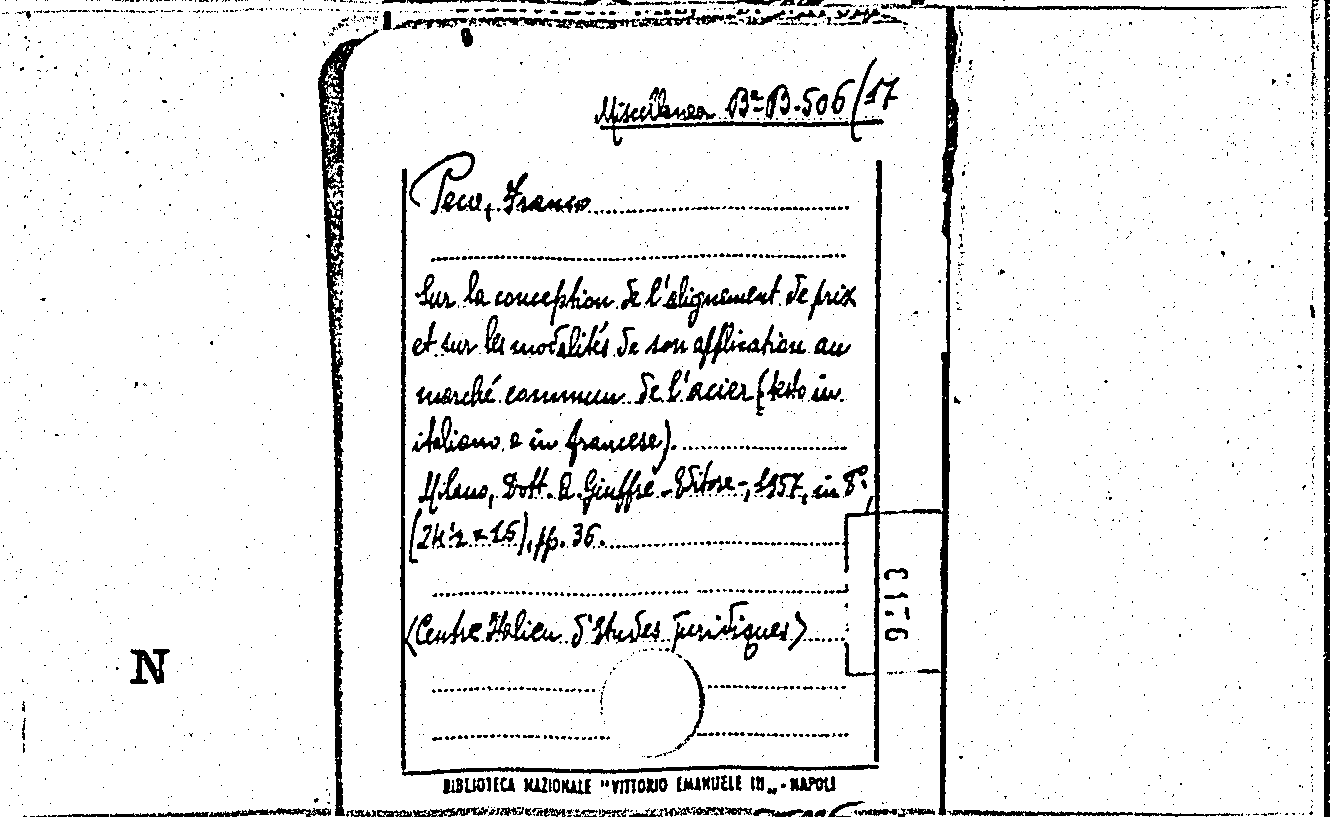 Miscellanea Bª B. 506/17
Peco, Franco
Sur la conception de l'alignement de prix
et sur les modalités de son application au
marché commun de l'acier (testo in
italiano e in francese).
Milano, Dott. A. Giuffrè - Editore -, 1957, in 8°,
(24½ x 15), pp. 36.
(Centre Italien d'Etudes Juridiques)
N
BIBLIOTECA NAZIONALE "VITTORIO EMANUELE III„ - NAPOLI